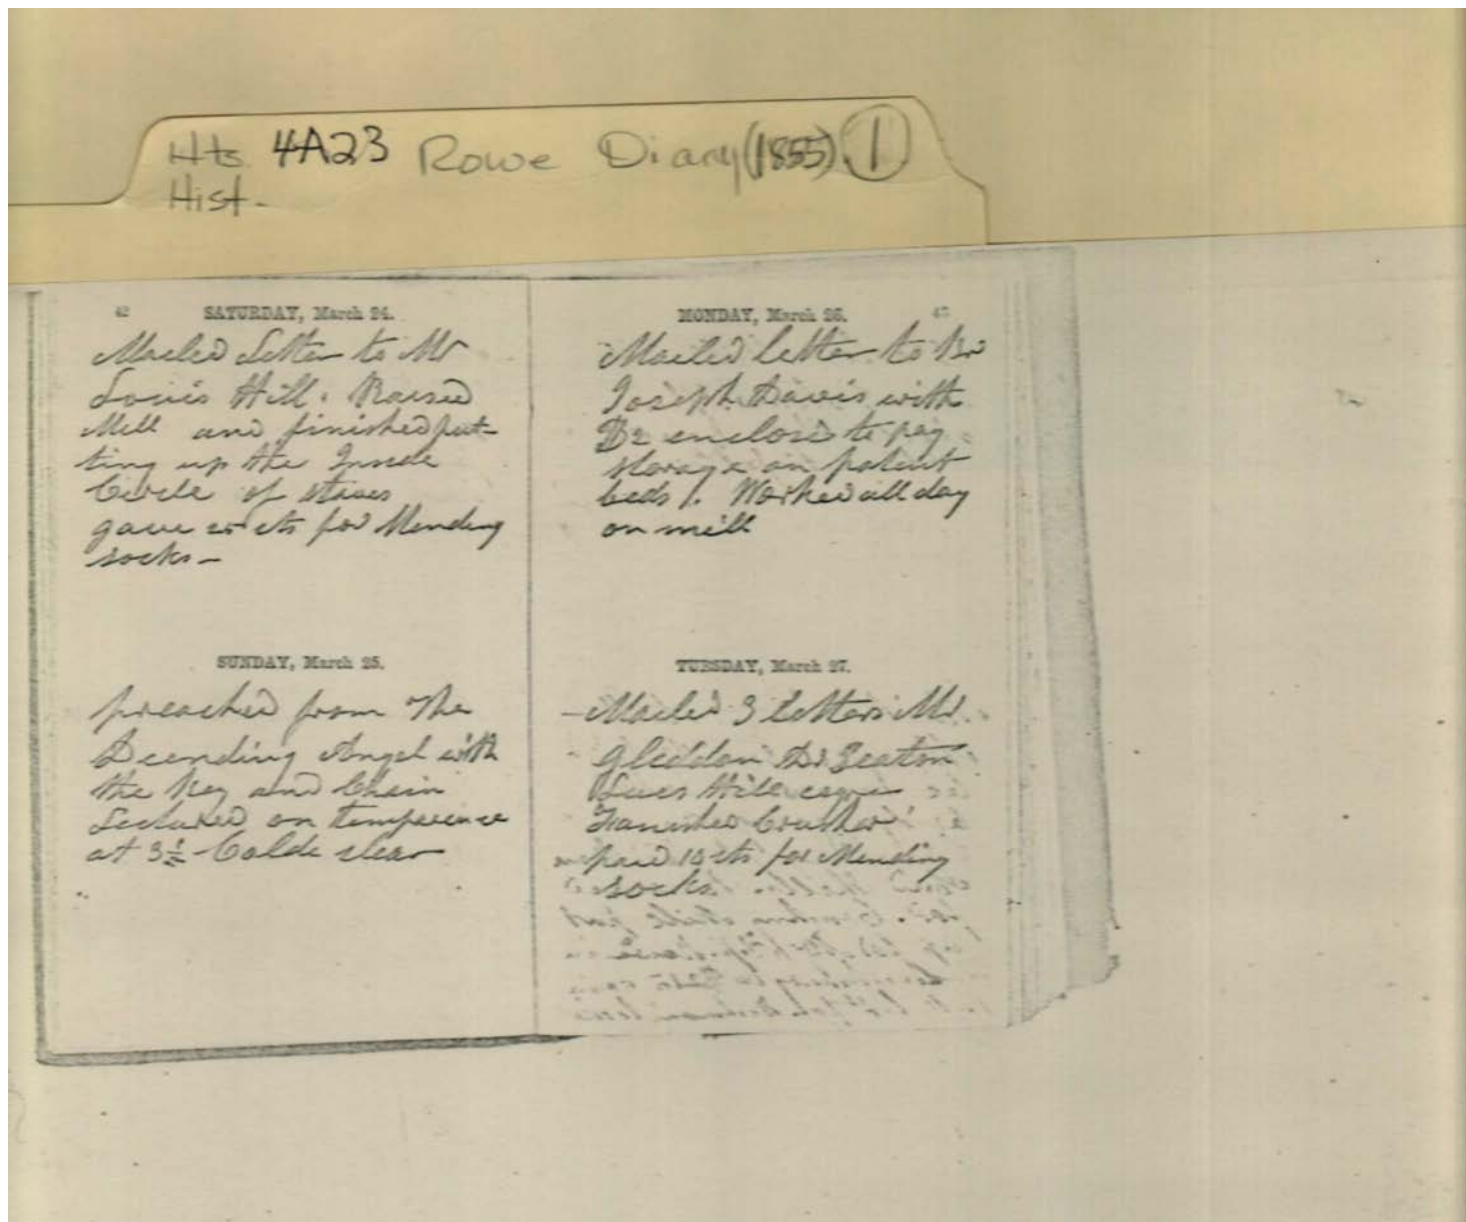 Hts 4A23 Rowe Diary (1855) 1
Hist.
42 SATURDAY, March 24.
Mailed Letter to Mr
Louis Hill. Raised
Mill and finished put-
ting up the Inside
Circle of staves
gave 25 cts for Mending
socks -
SUNDAY, March 25.
preached from The
Decending Angel with
the Key and Chain
Lectured on temperence
at 3½ Colde clear
MONDAY, March 26.
Mailed letter to Br
Joseph Davis with
$2 enclosd to pay
storage on patent
beds. Worked all day
on mill
TUESDAY, March 27.
- Mailed 3 letters Mr.
Gleddon Dr
Hill
Crusher
paid 10 cts for Mending
socks